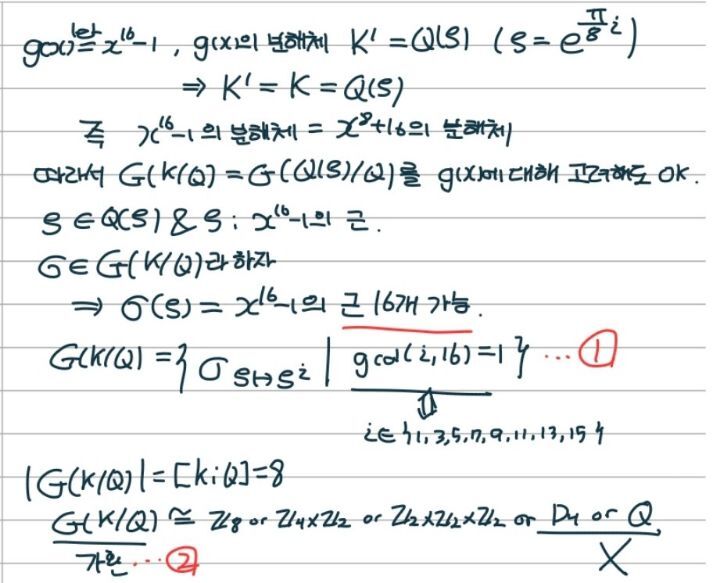 g(x) 란= x¹⁶-1, g(x)의 분해체 K' = Q(ζ) (ζ = e^{π/8 i})
⇒ K' = K = Q(ζ)
즉 x¹⁶-1의 분해체 = x⁸+16의 분해체
따라서 G(K/Q) = G(Q(ζ)/Q)를 g(x)에 대해 고려해도 OK.
ζ ∈ Q(ζ) & ζ : x¹⁶-1의 근.
σ ∈ G(K/Q)라 하자
⇒ σ(ζ) = x¹⁶-1의 근 16개 가능.
G(K/Q) = { σ_{ζ↦ζ^i} | gcd(i,16)=1 } ... ①
i ∈ {1,3,5,7,9,11,13,15}
|G(K/Q)| = [K:Q] = 8
G(K/Q) ≅ Z/8 or Z/4×Z/2 or Z/2×Z/2×Z/2 or D₄ or Q.
가환 ... ② X